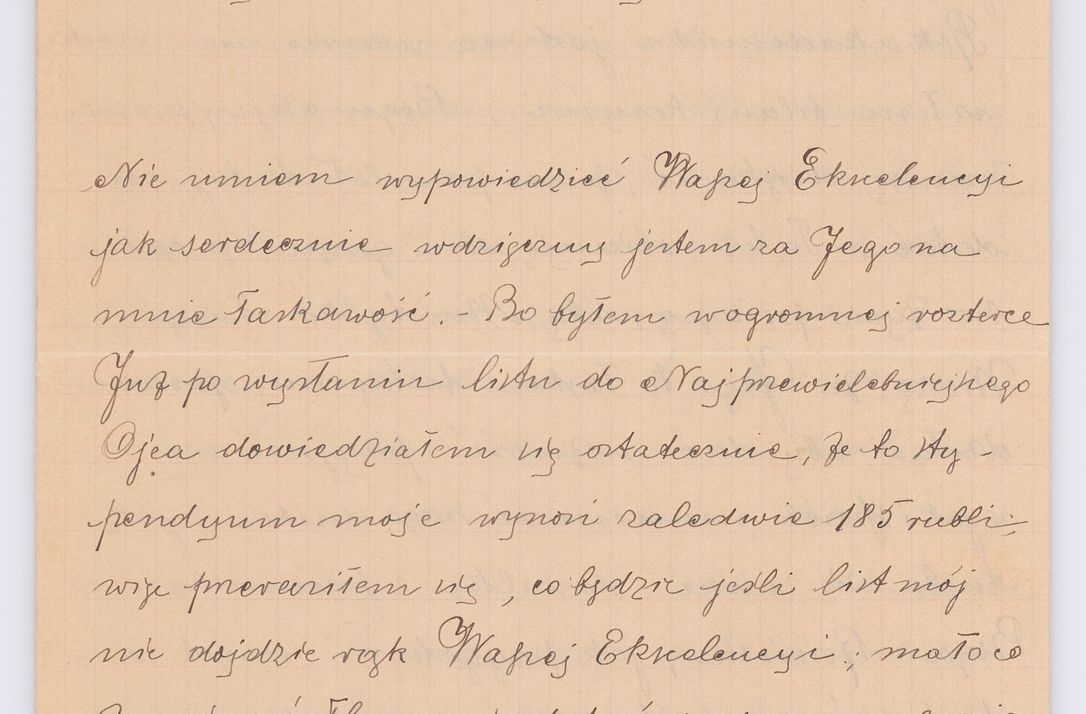 Nie umiem wypowiedzieć Waszej Ekscelencyi
jak serdecznie wdzięczny jestem za Jego na
mnie łaskawość. - Bo byłem w ogromnej rozterce
Już po wysłaniu listu do Najprzewielebniejszego
Ojca dowiedziałem się ostatecznie, że to sty-
pendyum moje wynosi zaledwie 185 rubli;
więc przeraziłem się, co będzie jeśli list mój
nie dojdzie rąk Waszej Ekscelencyi; mało co